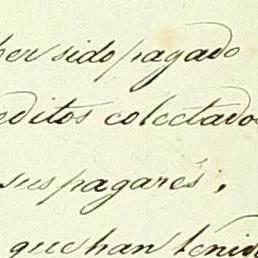 ber sido pagado
editos colectado
sus pagarés;
que han tenid